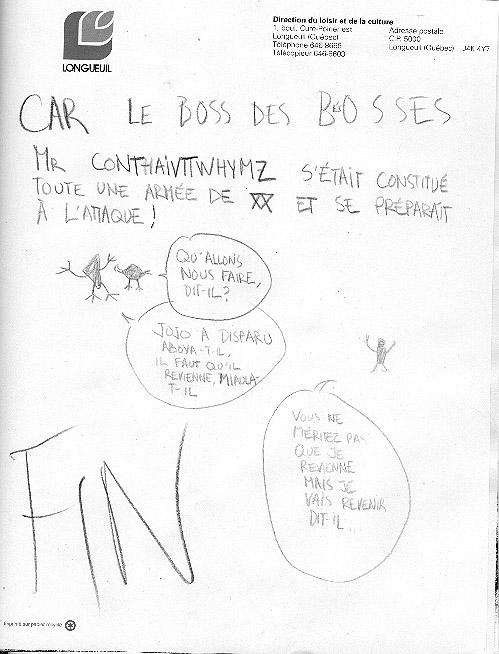 LONGUEUIL
Direction du loisir et de la culture
1, boul. Curé-Poirier est
Longueuil (Québec)
Téléphone 646-8665
Télécopieur 646-8603
Adresse postale
C.P. 5000
Longueuil (Québec) J4K 4Y7
CAR LE BOSS DES BOSSES
MR CONTHAIVTTWHYMZ S'ÉTAIT CONSTITUÉ
TOUTE UNE ARMÉE DE XX ET SE PRÉPARAIT
À L'ATTAQUE!
QU'ALLONS
NOUS FAIRE,
DIT-IL?
JOJO A DISPARU
ABOYA-T-IL,
IL FAUT QU'IL
REVIENNE, MIAULA-
T-IL
VOUS NE
MÉRITEZ PAS
QUE JE
REVIENNE
MAIS JE
VAIS REVENIR
DIT-IL...
FIN
Imprimé sur papier recyclé